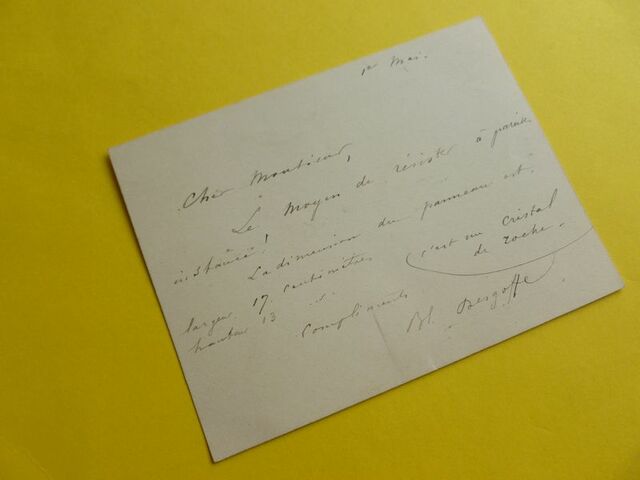 1er Mai.
Cher Monsieur,
Le moyen de résister à pareille
instance!
La dimension du panneau est:
largeur 17 centimètres
hauteur 13 "
c'est un cristal
de roche.
Compliments
Bl. Desgoffe.